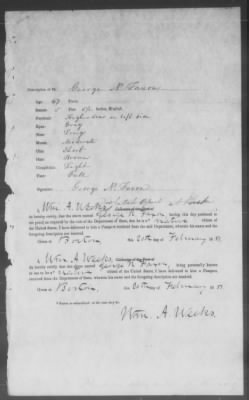 Description of Mr. George N. Faxon
Age: 27 Years.
Stature: 5 Feet 5½ Inches, English.
Forehead: High, on left side
Eyes: Gray
Nose: Long
Mouth: Moderate
Chin: Short
Hair: Brown
Complexion: Light
Face: Full
Signature: George N. Faxon
I, Wm. A. Weeks,
do hereby certify, that the above named George N. Faxon having this day produced to
me proof as required by the rule of the Department of State, that he is a native citizen of
the United States, I have delivered to him a Passport received from the said Department, wherein his name and the
foregoing description are inserted.
Given at Boston, on 20th of February 18
I, Wm. A. Weeks
do hereby certify, that the above named George N. Faxon, being personally known
to me as a native citizen of the United States, I have delivered to him a Passport
received from the Department of State, wherein his name and the foregoing description are inserted.
Given at Boston, on 20th of February 18
Wm. A. Weeks.